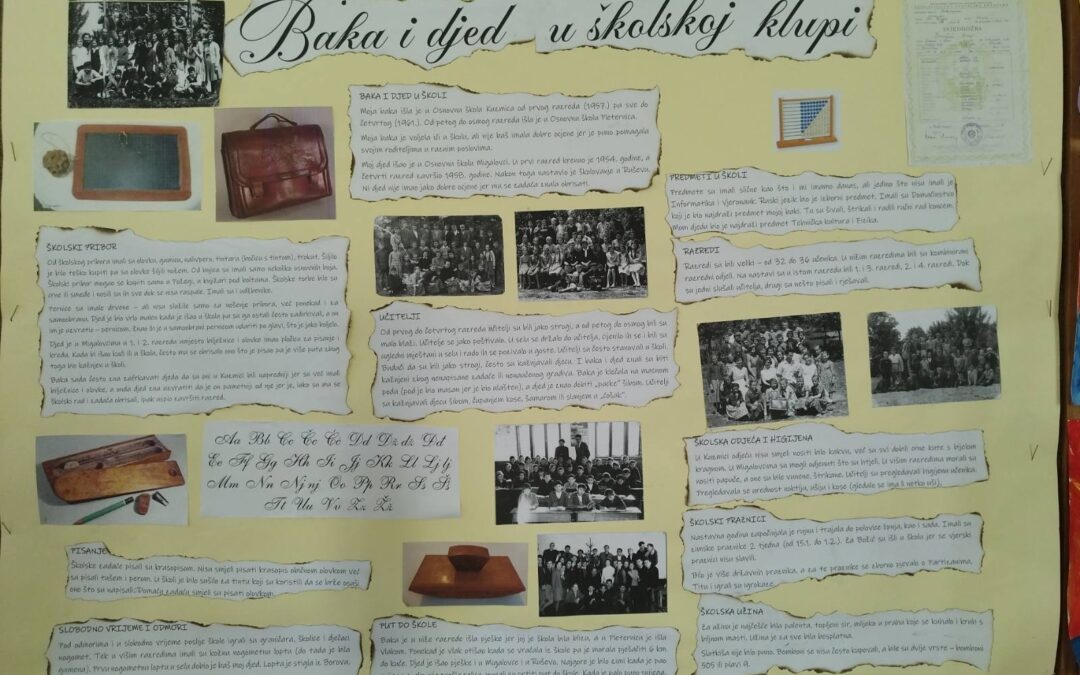 Baka i djed u školskoj klupi
BAKA I DJED U ŠKOLI
Moja baka išla je u Osnovna škola Kuzmica od prvog razreda (1957.) pa sve do
četvrtog (1961.). Od petog do osmog razreda išla je u Osnovna škola Pleternica.
Moja baka je voljela ići u školu, ali nije baš imala dobre ocjene jer je puno pomagala
svojim roditeljima u raznim poslovima.
Moj djed išao je u Osnovnu školu Migalovci. U prvi razred krenuo je 1954. godine, a
četvrti razred završio 1958. godine. Nakon toga nastavio je školovanje u Ruševu.
Ni djed nije imao jako dobre ocjene jer mu se zadaća znala obrisati.
PREDMETI U ŠKOLI
Predmete su imali slične kao što i mi imamo danas, ali jedino što nisu imali je
Informatika i Vjeronauk. Ruski jezik bio je izborni predmet. Imali su Domaćinstvo
koji je bio najdraži predmet mojoj baki. Tu su šivali, štrikali i radili ručni rad koncem.
Mom djedu bio je najdraži predmet Tehnička kultura i Fizika.
RAZREDI
Razredi su bili veliki – od 32 do 36 učenika. U nižim razredima bili su kombinirani
razredni odjeli. Na nastavi su u istom razredu bili 1. i 3. razred, 2. i 4. razred. Dok
su jedni slušali učitelja, drugi su nešto pisali i rješavali.
ŠKOLSKI PRIBOR
Od školskog pribora imali su olovku, gumicu, nalivpero, tintaru (bočicu s tintom), trokut. Šiljilo
je bilo teško kupiti pa su olovke šiljili nožem. Od bojica su imali samo nekoliko osnovnih boja.
Školski pribor mogao se kupiti samo u Požegi, u knjižari pod boltama. Školske torbe bile su
crne ili smeđe i nosili su ih sve dok se nisu raspale. Imali su i udžbenike.
Pernice su imale drvene – ali nisu služile samo za nošenje pribora, već ponekad i za
samoobranu. Djed je bio vrlo malen kada je išao u školu pa su ga ostali često zadirkivali, a on
im je uzvratio – pernicom. Znao ih je u samoobrani pernicom udariti po glavi, što je jako boljelo.
Djed je u Migalovcima u 1. i 2. razredu umjesto bilježnice i olovke imao pločicu za pisanje i
kredu. Kada bi išao kući ili u školu, često mu se obrisalo ono što je pisao pa je više puta zbog
toga bio kažnjen u školi.
Baka sada često zna zafrkavati djeda da su oni u Kuzmici bili napredniji jer su već imali
bilježnice i olovke, a onda djed zna uzvratiti da je on pametniji od nje jer je, iako su mu se
školski rad i zadaća obrisali, ipak uspio završiti razred.
UČITELJI
Od prvog do četvrtog razreda učitelji su bili jako strogi, a od petog do osmog bili su
malo blaži. Učitelje se jako poštivalo. U selu se držalo do učitelja, cijenilo ih se i bili su
ugledni mještani u selu i rado ih se pozivalo u goste. Učitelji su često stanovali u školi.
Budući da su bili jako strogi, često su kažnjavali djecu. I baka i djed znali su biti
kažnjeni zbog nenapisane zadaće ili nenaučenog gradiva. Baka je klečala na masnom
podu (pod je bio masan jer je bio ulašten), a djed je znao dobiti „packe“ šibom. Učitelji
su kažnjavali djecu šibom, čupanjem kose, šamarom ili slanjem u „ćošak“.
Aa Bb Cc Čč Ćć Dd Dž dž Đđ
Ee Ff Gg Hh Ii Jj Kk Ll Lj lj
Mm Nn Nj nj Oo Pp Rr Ss Šš
Tt Uu Vv Zz Žž
ŠKOLSKA ODJEĆA I HIGIJENA
U Kuzmici odjeću nisu smjeli nositi bilo kakvu, već su svi dobili crne kute s bijelom
kragnom. U Migalovcima su mogli odjenuti što su htjeli. U višim razredima morali su
nositi papuče, a one su bile vunene, štrikane. Učitelji su pregledavali higijenu učenika.
Pregledavala se urednost noktiju, ušiju i kose (gledalo se ima li netko uši).
ŠKOLSKI PRAZNICI
Nastavna godina započinjala je rujnu i trajala do polovice lipnja, kao i sada. Imali su
zimske praznike 2 tjedna (od 15.1. do 1.2.). Za Božić su išli u školu jer se vjerski
praznici nisu slavili.
Bilo je više državnih praznika, a za te praznike se zborno pjevalo o Partizanima,
Titu i igrali su igrokaze.
PISANJE
Školske zadaće pisali su krasopisom. Nisu smjeli pisati krasopis običnom olovkom već
su pisali tušem i perom. U školi je bilo sušilo za tintu koji su koristili da se brže osuši
ono što su napisali. Domaću zadaću smjeli su pisati olovkom.
ŠKOLSKA UŽINA
Za užinu je najčešće bila palenta, topljeni sir, mlijeko u prahu koje se kuhalo i kruh s
biljnom masti. Užina je za sve bila besplatna.
Slatkiša nije bilo puno. Bomboni se nisu često kupovali, a bile su dvije vrste – bomboni
505 ili plavi 9.
SLOBODNO VRIJEME I ODMORI
Pod odmorima i u slobodno vrijeme poslije škole igrali su graničara, školice i dječaci
nogomet. Tek u višim razredima imali su kožnu nogometnu loptu (do tada je bila
gumena). Prvu nogometnu loptu u selu dobio je baš moj djed. Lopta je stigla iz Borova.
PUT DO ŠKOLE
Baka je u niže razrede išla pješke jer joj je škola bila blizu, a u Pleternicu je išla
vlakom. Ponekad je vlak otišao kada se vraćala iz škole pa je morala pješačiti 6 km
do kuće. Djed je išao pješke i u Migalovce i u Ruševo. Najgore je bilo zimi kada je pao